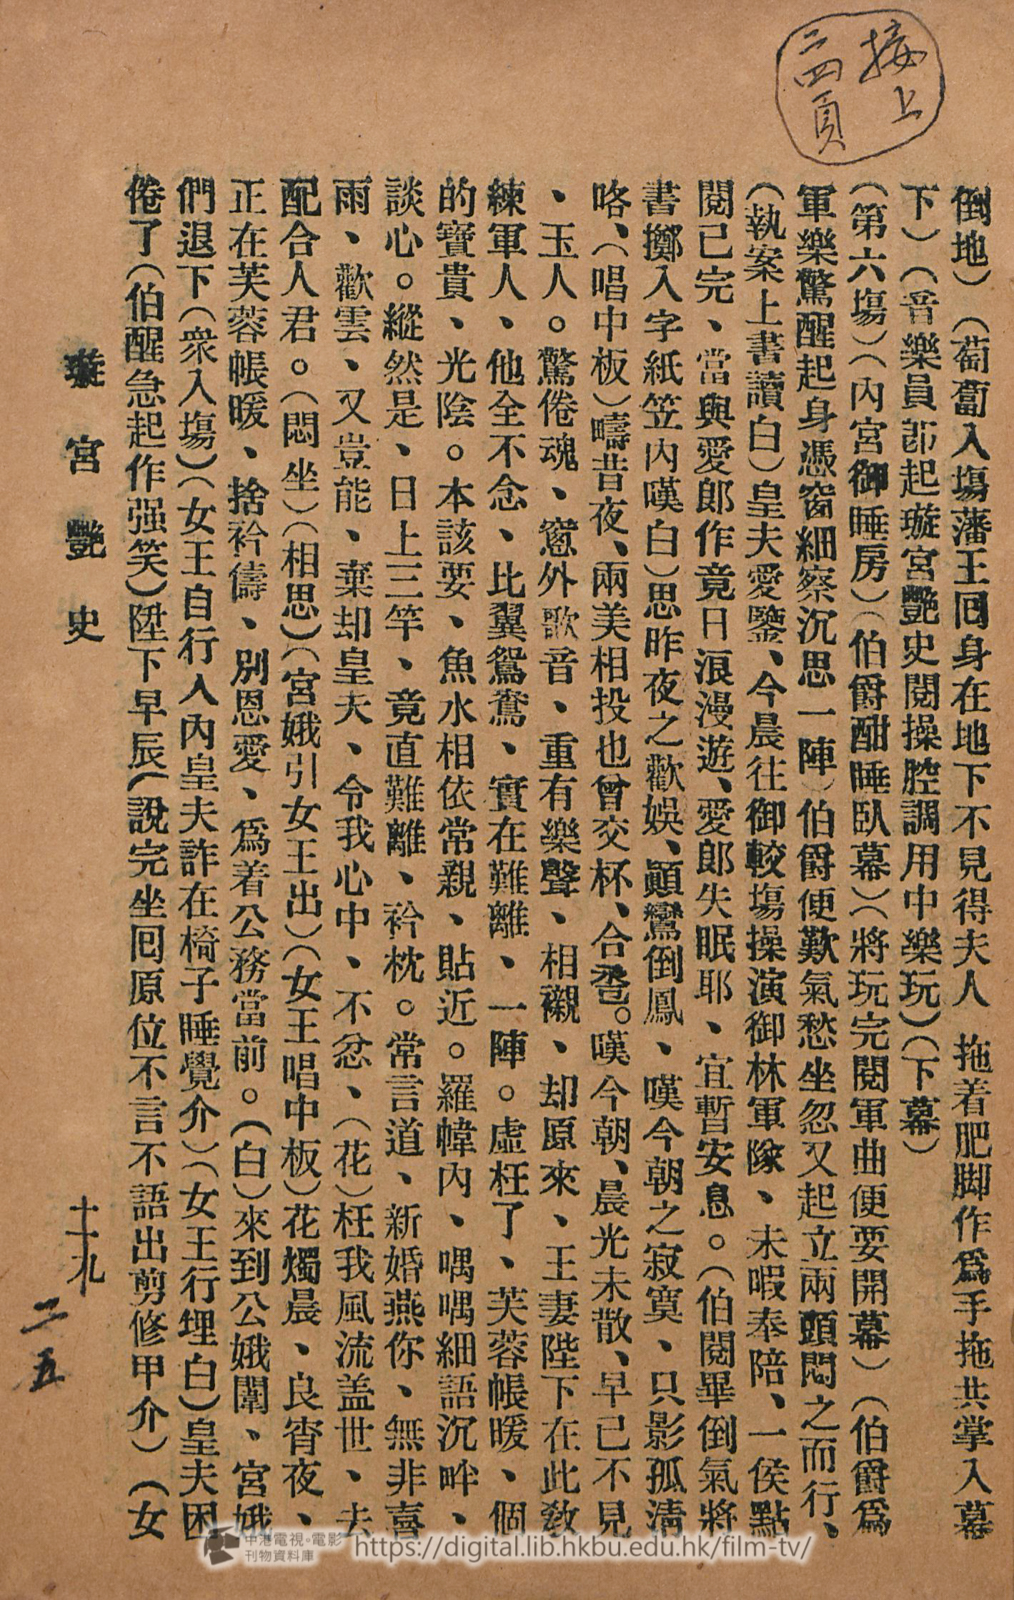 接上
二四頁
倒地）（萄蔔入塲藩王囘身在地下不見得夫人　拖着肥脚作爲手拖共掌入幕
下）（音樂員卽起璇宮艷史閱操腔調用中樂玩）（下幕）
（第六塲）（內宮御睡房）（伯爵酣睡臥幕）（將玩完閱軍曲便要開幕）（伯爵爲
軍樂驚醒起身憑窗細察沉思一陣）伯爵便歎氣愁坐忽又起立兩頭悶之而行、
（執案上書讀白）皇夫愛鑒、今晨往御較塲操演御林軍隊、未暇奉陪、一侯點
閱已完、當與愛郎作竟日浪漫遊、愛郎失眠耶、宜暫安息。（伯閱畢倒氣將
書擲入字紙笠內嘆白）思昨夜之歡娛、顚鸞倒鳳、嘆今朝之寂寞、只影孤淸
咯、（唱中板）疇昔夜、兩美相投也曾交杯、合巹。嘆今朝、晨光未散、早已不見
、玉人。驚倦魂、窓外歌音、重有樂聲、相襯、却原來、王妻陛下在此敎
練軍人、他全不念、比翼鴛鴦、實在難離、一陣。虛枉了、芙蓉帳暖、個
的寶貴、光陰。本該要、魚水相依常親、貼近。羅幃內、喁喁細語沉吟、
談心。縱然是、日上三竿、竟直難離、衿枕。常言道、新婚燕你、無非喜
雨、歡雲、又豈能、棄却皇夫、令我心中、不忿、（花）枉我風流盖世、去
配合人君。（悶坐）（相思）（宮娥引女王出）（女王唱中板）花燭晨、良宵夜、
正在芙蓉帳暖、捨衿儔、別恩愛、爲着公務當前。（白）來到公娥闈、宮娥
們退下（衆入塲）（女王自行入內皇夫詐在椅子睡覺介）（女王行埋白）皇夫困
倦了（伯醒急起作强笑）陞下早辰（說完坐囘原位不言不語出剪修甲介）（女
璇宮艷史
十九
二五
中港電視·電影
刊物資料庫
https://digital.lib.hkbu.edu.hk/film-tv/